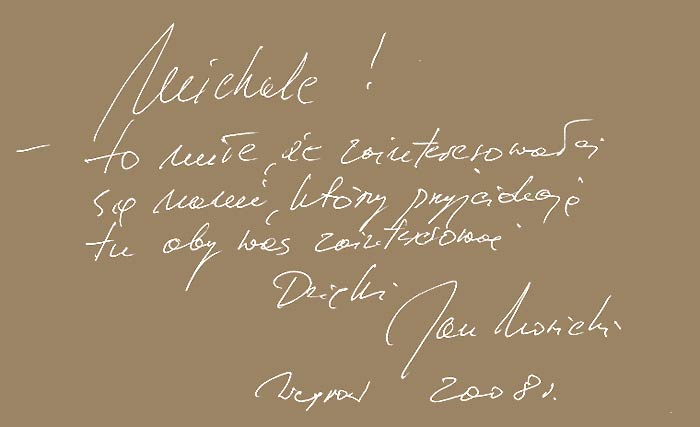 Michale !
– to miłe, że zainteresowałeś
się nami, którzy przyjeżdżają
tu aby was zainteresować
Dzięki
Jan Nosicki
2008 r.